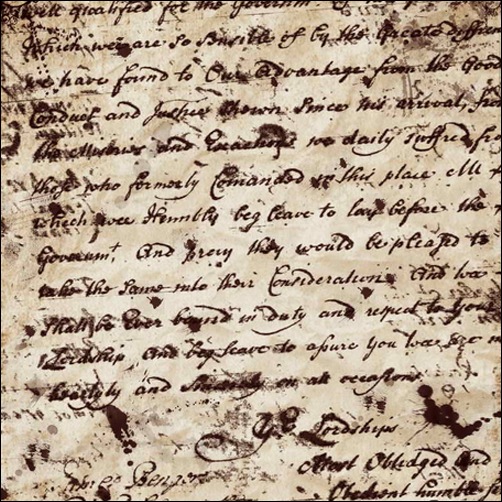 well qualified for the Governm
which wee are so Sensible of by the Greate differen
we have found to Our advantage from the Good
Conduct and Justice Shewn Since his arrival, fro
the Miseries and Exactions we daily suffred fr
those who formerly Comanded in this place All
which wee Humbly beg leave to lay before the
Governmt. And pray they would be pleased to
take the Same into their Consideration And wee
Shall be Ever bound in duty and respect to Your
Lordship And beg leave to assure You wee are
heartyly and Sincerely on all occasions
Yr Lordships
Most Obliedged and
Obedient humble